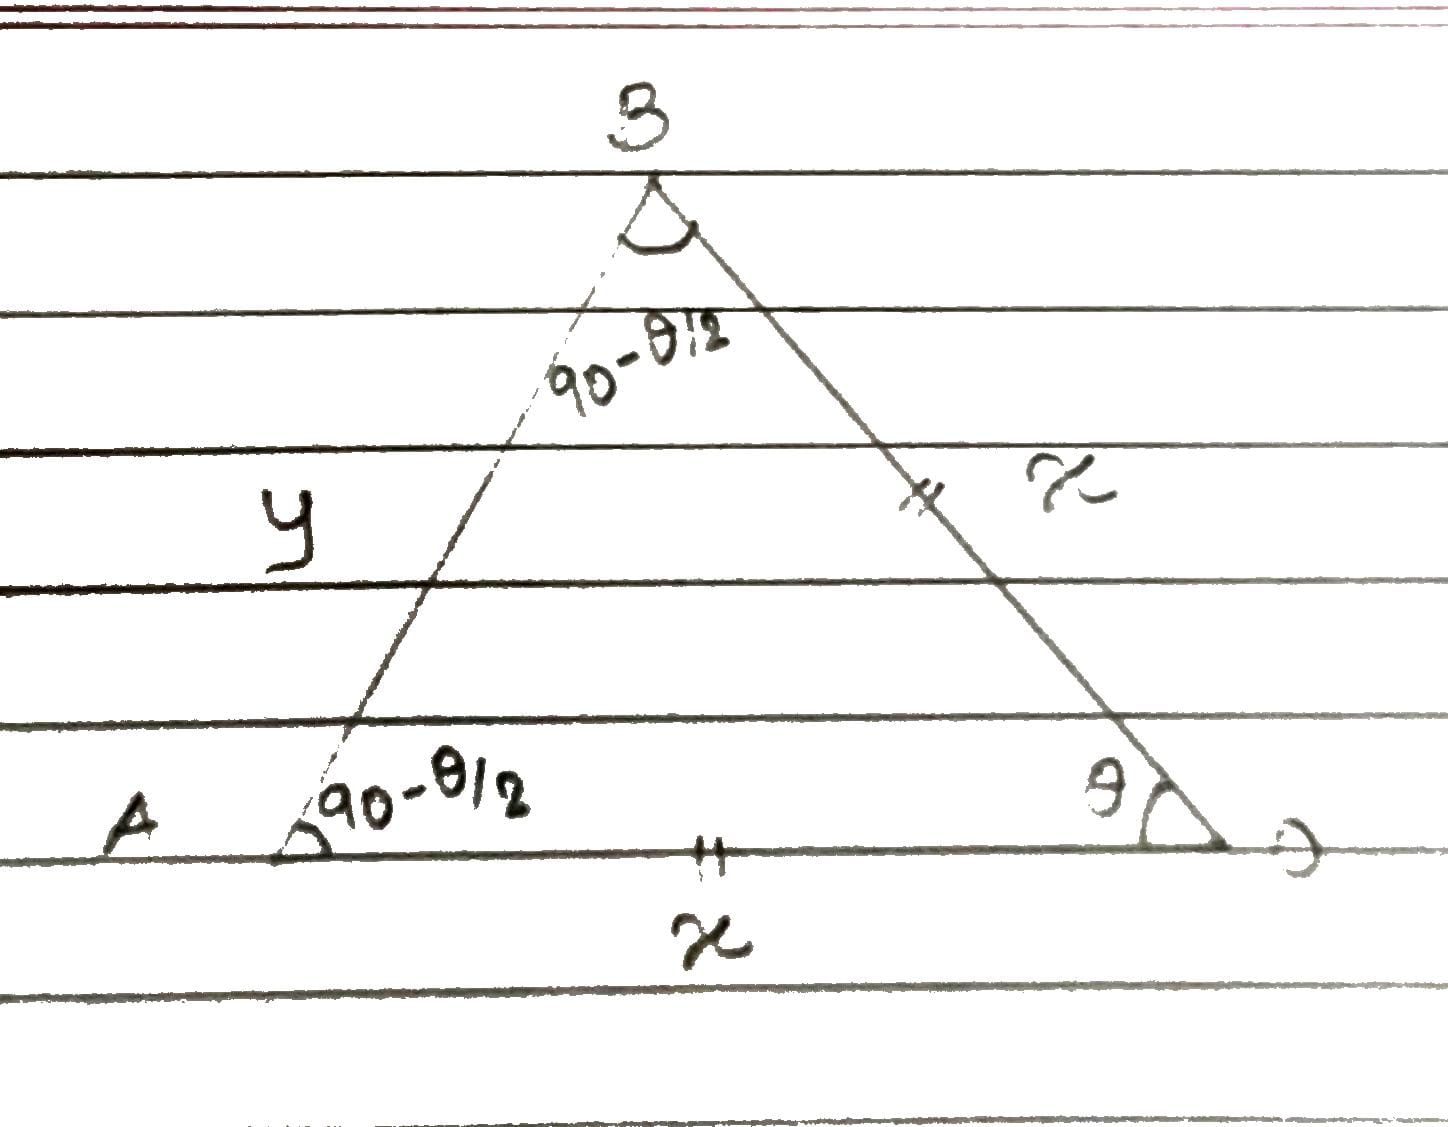 B
90-θ/2
y
x
A
90-θ/2
θ
D
x